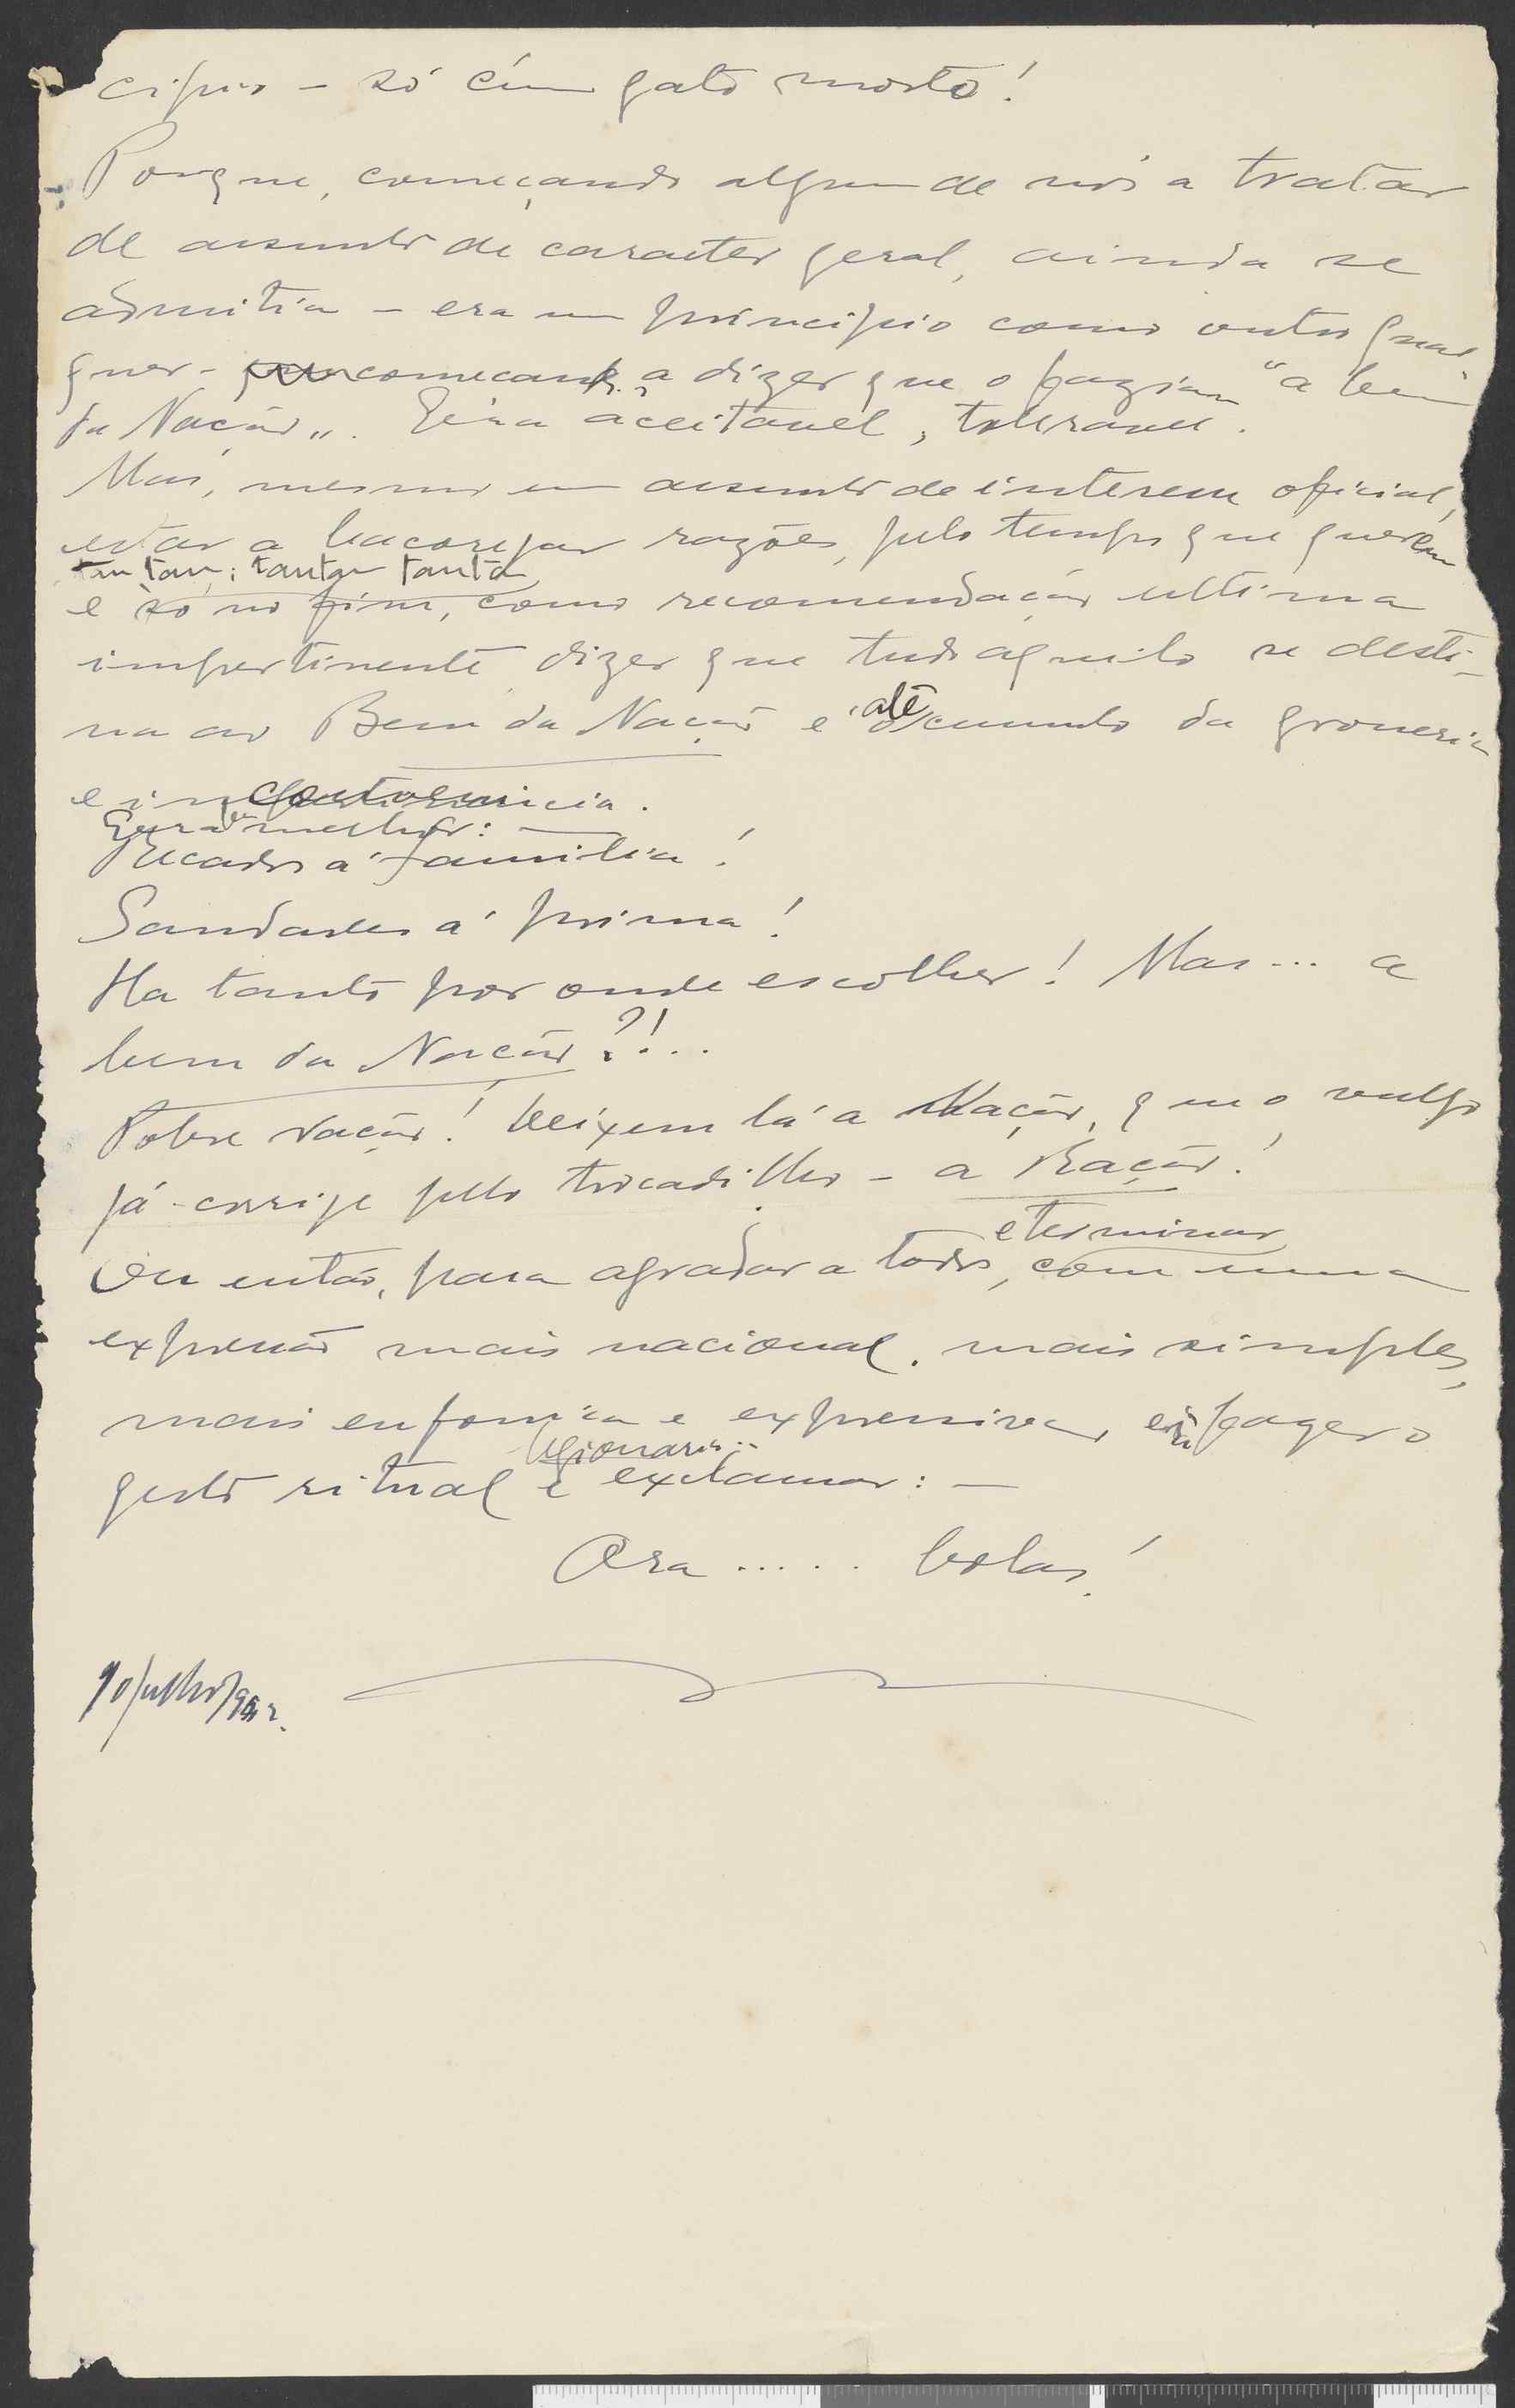 cipios - só c'um gato morto!
Porque, começando algum de nós a tratar
de assunto de caracter geral, ainda se
admitia - era um principio como outro qual
quer - começando a dizer que o faziam "a bem
da Nação". Seria aceitavel, toleravel.
Mas, mesmo em assunto de interesse oficial,
estar a bacorejar razões, pelo tempo que querem
tantan; tantan tantan
e só no fim, como recomendação ultima
impertinente dizer que tudo aquilo se desti-
na ao Bem da Nação é até o cumulo da grosseria
e in
Seria melhor: —
Recados á familia!
Saudades á prima!
Ha tanto por onde escolher! Mas... a
bem da Nação?!..
Pobre Nação! Deixem lá a Nação, que o vulgo
já corrige pelo trocadilho - a Ração!
e terminar
Ou então, para agradar a todos, com uma
expressão mais nacional, mais simples,
mais eufonica e expressiva, fazer o
legionario..
gesto ritual e exclamar: —
Ora ..... bolas!
10/julho/942.